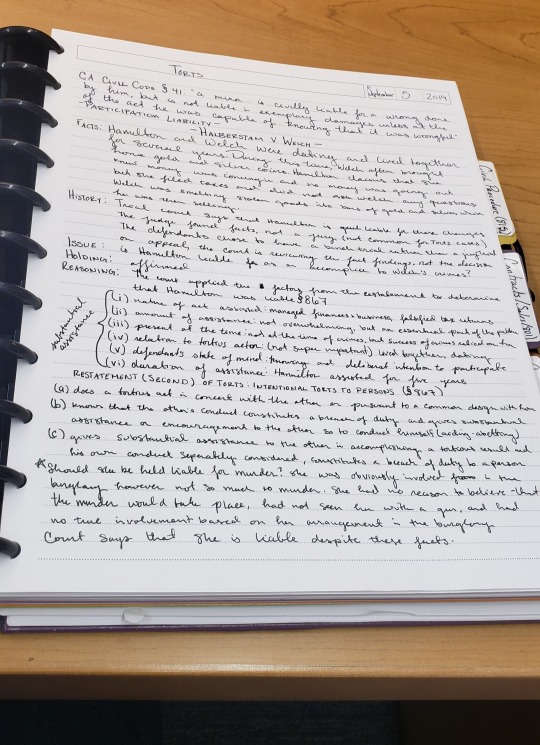 TORTS
September 5 2019
CA Civil Code § 41: "a minor is civilly liable for a wrong done
by him, but is not liable in exemplary damages unless at the
of the act he was capable of knowing that it was wrongful."
-PARTICIPATION LIABILITY-
-HALBERSTAM V. WELCH-
FACTS: Hamilton and Welch were dating and lived together
for several years. During this time, Welch often brought
home gold and silver coins. Hamilton claims that she
knew money was coming and no money was going out
but she filed taxes and did not ask any questions
Welch was smelting stolen goods into bars of gold and silver which
he was then selling.
HISTORY: Trial court says that Hamilton is liable for these charges
The judge found facts, not a jury (not common for Torts cases)
The defendants chose to have a bench trial rather than a jury trial
on appeal, the court is reviewing the fact findings, not the decision
ISSUE: is Hamilton liable as an accomplice to Welch's crimes?
HOLDING: affirmed
REASONING: the court applied the factors from the restatement to determine
that Hamilton was liable § 867
substantial assistance
(i) nature of act assisted: managed finances + business, falsified tax returns
(ii) amount of assistance: not overwhelming, but an essential part of the
(iii) present at the time: not at the time of crimes, but success of crimes relied on
(iv) relation to tortius actor (not super important) lived together, dating
(v) defendant's state of mind: knowing and deliberate intention to participate
(vi) duration of assistance: Hamilton assisted for five years
RESTATEMENT (SECOND) OF TORTS: INTENTIONAL TORTS TO PERSONS (§ 867)
(a) does a tortius act in concert with the other or pursuant to a common design with him
(b) knows that the other's conduct constitutes a breach of duty and gives substantial
assistance or encouragement to the other so to conduct himself (aiding-abetting)
(c) gives substantial assistance to the other in accomplishing a tortious result and
his own conduct, separately considered, constitutes a breach of duty to a person
*Should she be held liable for murder? She was obviously involved in the
burglary however not so much to murder. She had no reason to believe that
the murder would take place, had not seen him with a gun, and had
no true involvement based on her arrangement in the burglary
Court says that she is liable despite these facts.
Civil Procedure
Contracts